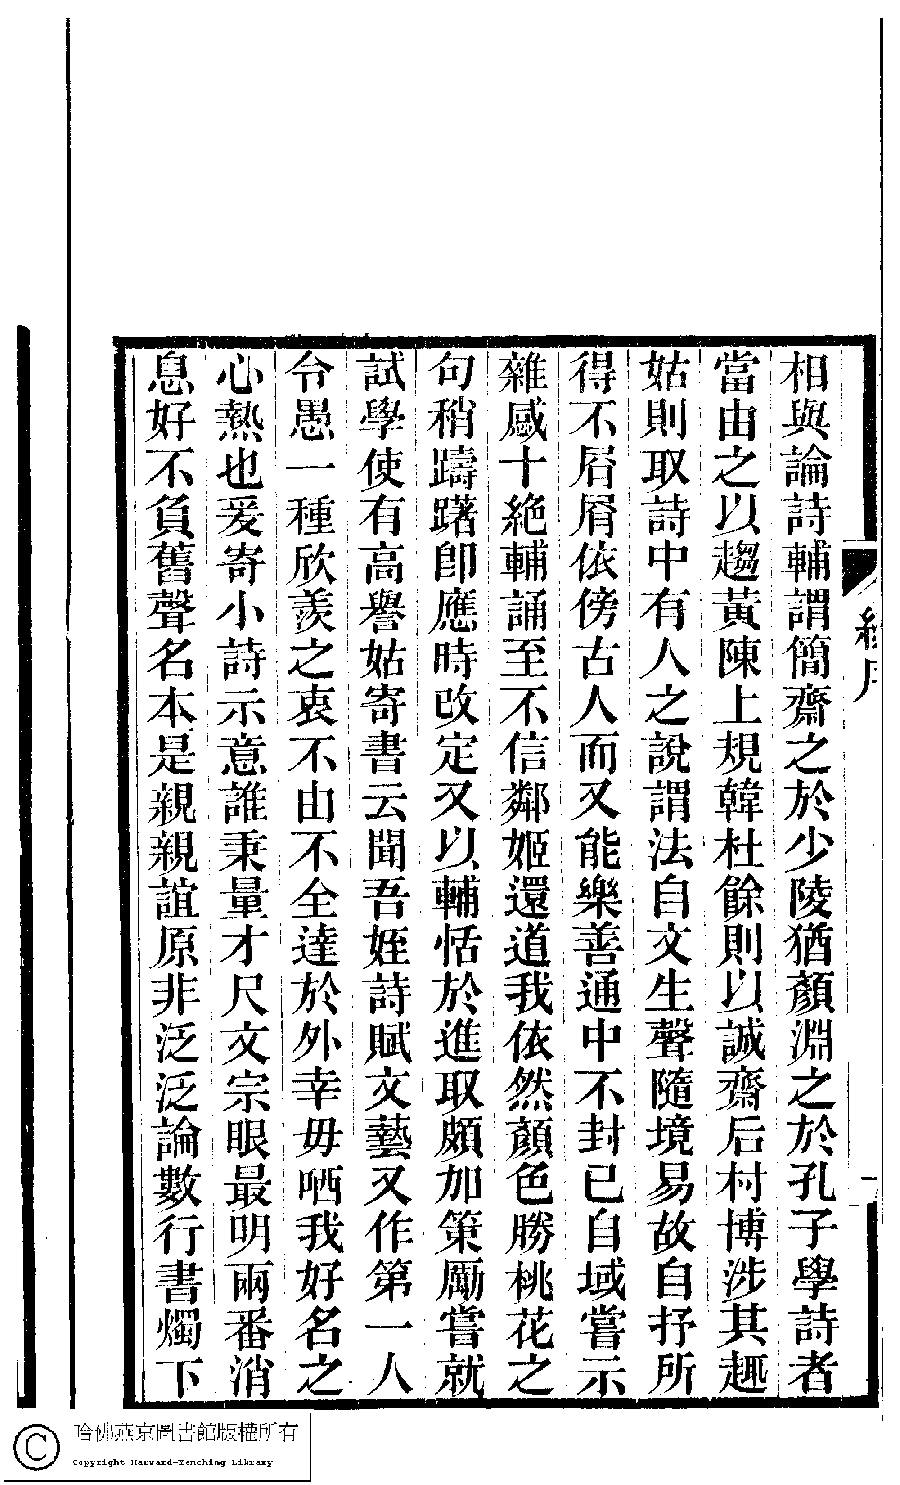 相與論詩輔謂簡齋之於少陵猶顏淵之於孔子學詩者
當由之以趨黃陳上規韓杜餘則以誠齋后村博涉其趣
姑則取詩中有人之說謂法自文生聲隨境易故自抒所
得不屑屑依傍古人而又能樂善通中不封已自域嘗示
雜感十絶輔誦至不信鄰姬還道我依然顏色勝桃花之
句稍躊躇卽應時改定又以輔恬於進取頗加策勵嘗就
試學使有高譽姑寄書云聞吾姪詩賦文藝又作第一人
令愚一種欣羨之衷不由不全達於外幸毋哂我好名之
心熱也爰寄小詩示意誰秉量才尺文宗眼最明兩番消
息好不負舊聲名本是親親誼原非泛泛論數行書燭下
哈佛燕京圖書館版權所有
Copyright Harvard-Yenching Library